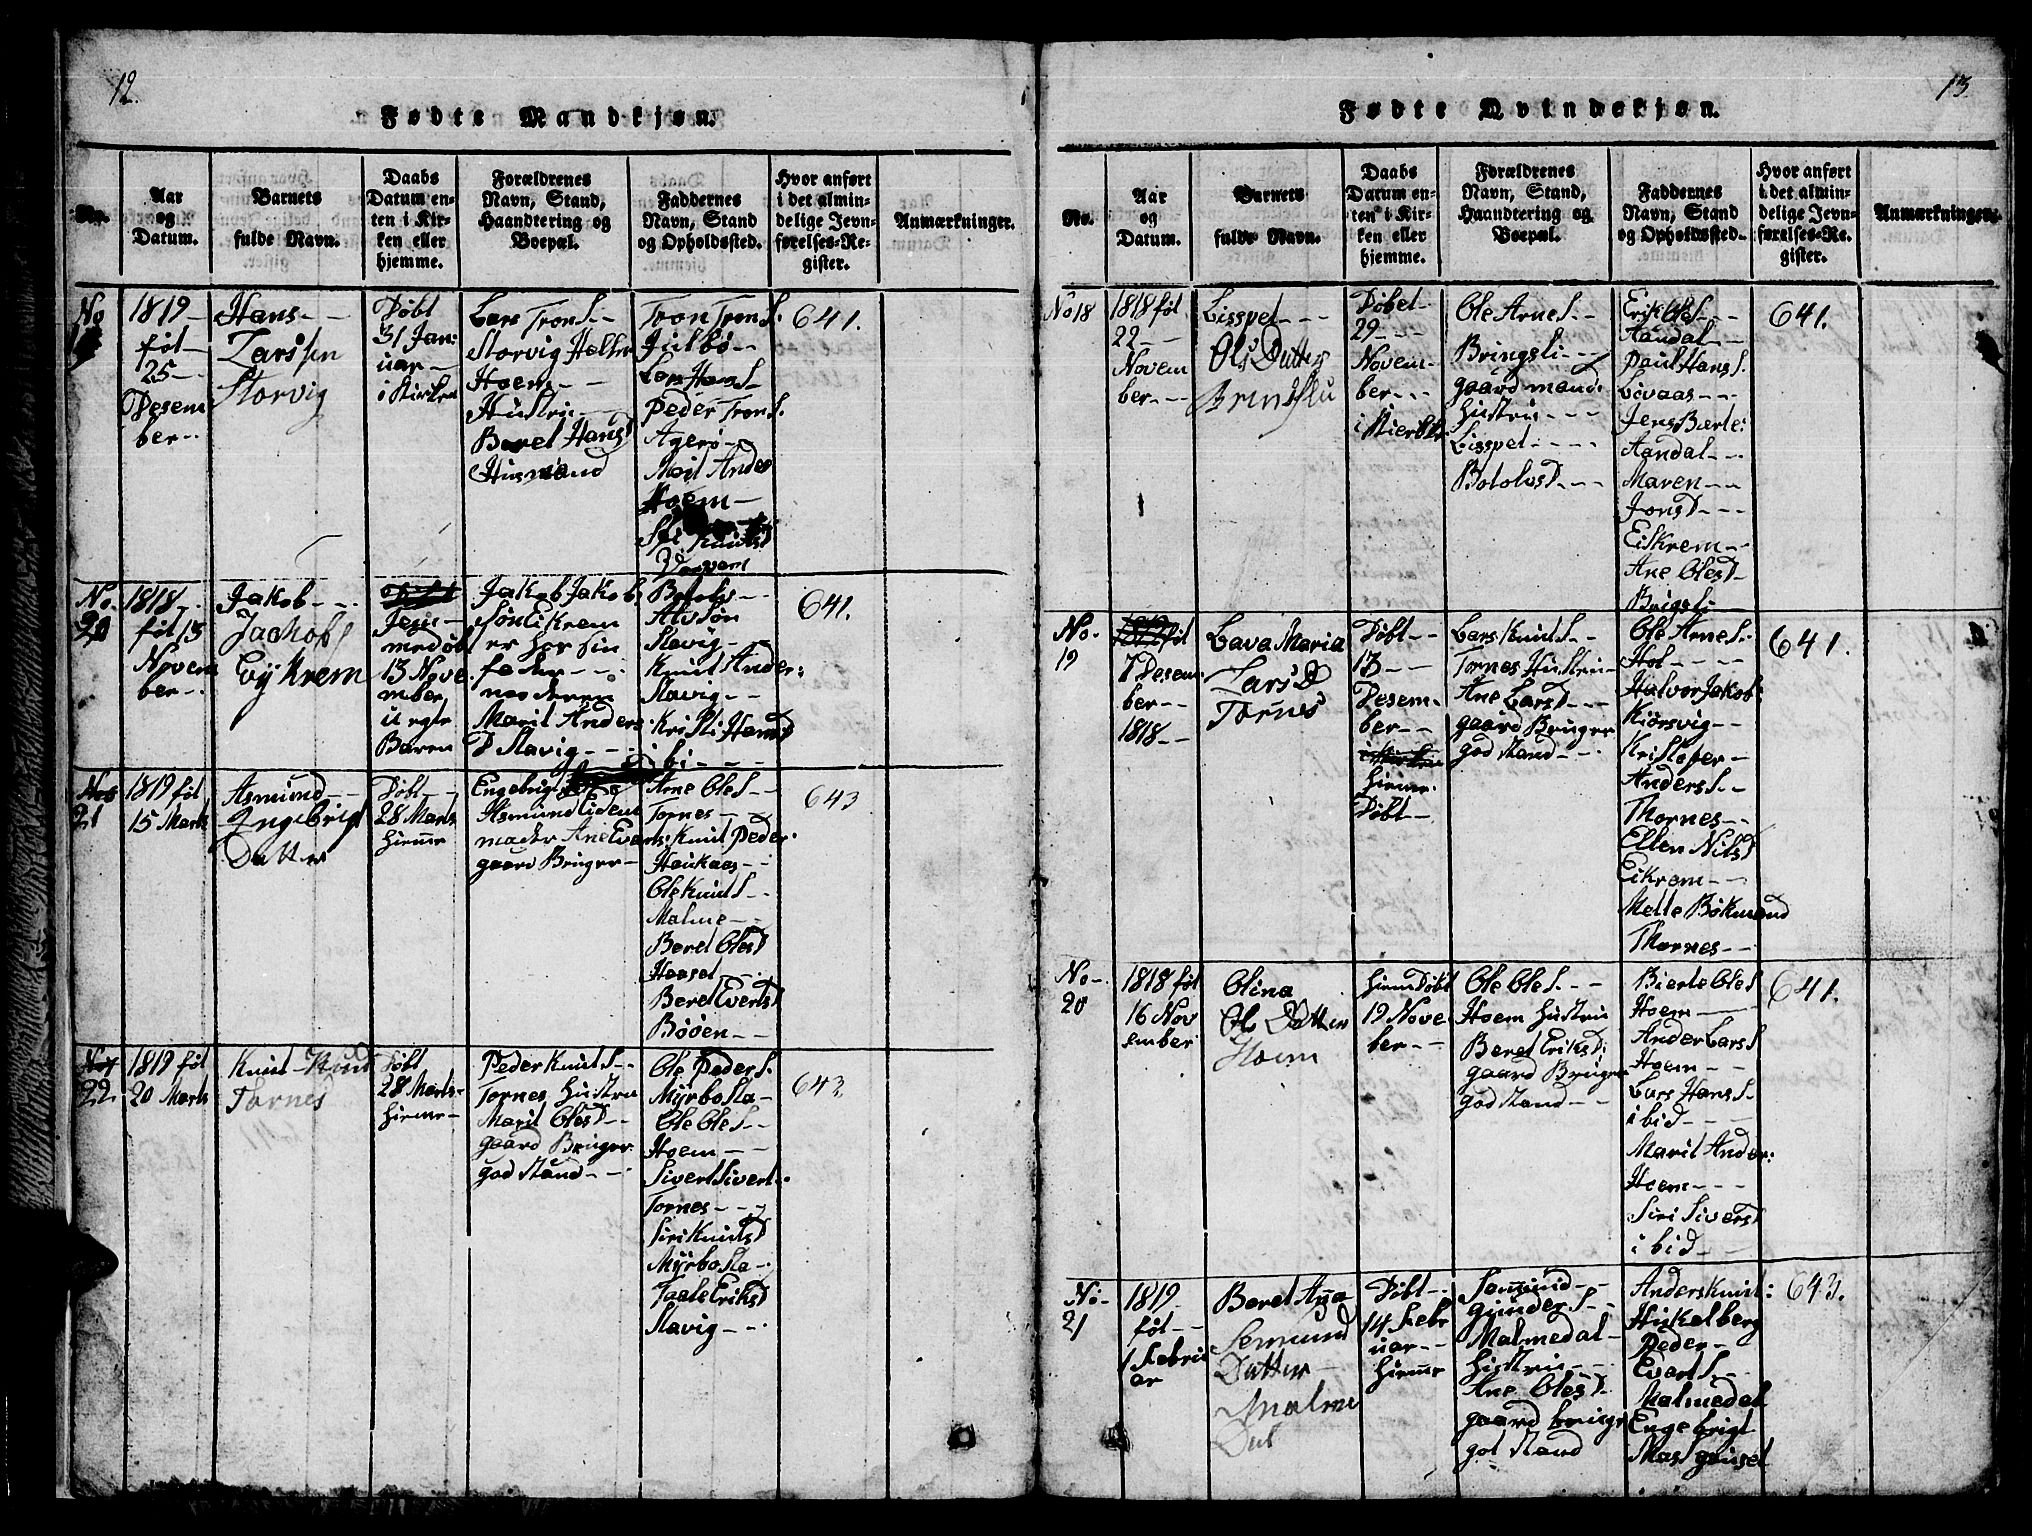 12.
Fødte Mandkjøn.
No.
Aar
og
Datum.
Barnets
fulde Navn.
Daabs
Datum en-
ten i Kir-
ken eller
hjemme.
Forældrenes
Navn, Stand,
Haandtering og
Boepæl.
Faddernes
Navn, Stand
og Opholdssted.
Hvor anført
i det almin-
delige Jevn-
førelses-Re-
gister.
Anmærkninger.
No
1819
føt
25
Desem
ber
Hans
Larssen
Storvig
Døbt
31 Jan:
uar
i Kirken
Lars Trons
Storvig
Hoem
Hustru
Beret Hansd
Husmand
Tron Trons.
Julbø
Lars Hans
Peder Trons.
Agerø
Marit Anders
Hoem
Knudsd
641.
No.
20
1818
føt 13
Novem
ber
Jakob
Jackobs
Eykrem
Jem
medøbt
13 Nove.
mber
u ægte
Baren
Jakob Jakobs
Søn Eikrem
er hor sin
fader
moderen
Marit Anders
D Slavig
Botolv
Alvsøn
Slavig
Knut Ander:
Slavig
Kristi Hansd
i bi
641.
No
21
1819 føt
15 Marts
Asmund
Ingebrigt
Datter
Døbt
28 Marts
hiemme
Engebrigt
Asmund Eidem
moder Ane Everts:
gaard Bruger
Arne Oles
Tornes
Knut Peder
Haukaas
Ole Knuts
Malme
Beret Olesd
Haasel
Beret Evertsd
Bööen
643
22
1819 føt
20 Marts
Knut Knud
Tornes
Døbt
28 Marts
hieme
Peder Knuts
Tornes Hustru
Marit Olesd
gaard Bruger
god stand
Ole Peders.
Myrbosta
Ole Oles
Hoem
Sivert Sivert
Tornes
Siri Knutsd
Myrbosta
Eriksd
Slavig
643
13
Fødte Qvindekjøn.
No.
Aar
og
Datum.
Barnets
fulde Navn.
Daabs
Datum en-
ten i Kir-
ken eller
hjemme.
Forældrenes
Navn, Stand,
Haandtering og
Boepæl.
Faddernes
Navn, Stand
og Opholdssted.
Hvor anført
i det almin-
delige Jevn-
førelses-Re-
gister.
Anmærkninger.
No 18
1818 føt
22
Novem
ber
Lisspet
Ols Datter
Døbet
29
Novem-
ber
i Kierke
Ole Arnes
Bringsli
gaard mand
Hustru
Lisspet
Botolvsd
Erik Oles
Aandal
Paul Hans.
Løvaas
Jens Bærte:
Aandal
Maren
Jonsd
Eiskrem
Ane Olesd
Brigsli
641.
No.
19
føt
7 Desem
ber
1818
Lava Maria
Lars D
Tornes
Døbt
13
Desem-
ber
hieme
Døbt
Lars Knuts
Tornes Hustru
Ane Larsd
gaard Bruger
god stand
Ole Arnes
Hol
Halvor Jakob:
Kiörsvig
Kristofer
Anders
Thornes
Ellen Nilsd
Eikrem
Mette Bökmand
Thornes
641.
No-
20
1818 føt
16 Nov
ember
Olina
Ols Datter
Hoem
hiem Døbt
19 Nove
ber
Ole Oles
Hoem Hustru
Beret Eriksd:
gaard Bruger
god stand
Bierte Oles
Hoem
Ander Lars
Hoem
Lars Hans
i bid
Marit Ander:
Hoem
Siri Siversd
i bid
641.
No-
21
1819
føt
1 Febru
ar
Beret Ana
Semund
Datter
Malme
Dal
Døbt
14 Febr
uar
hieme
Semund
Gunders
Malmedal
Hustru
Ane Olesd
gaard bruger
got stand
Anders Knut:
Hukelberg
Peder
Everts
Malmedal
Engebrigt
643.